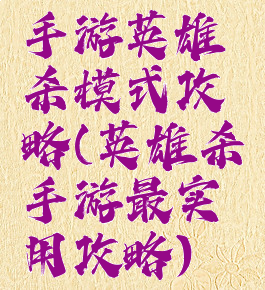 手游英雄
杀模式攻
略(英雄杀
手游最实
用攻略)